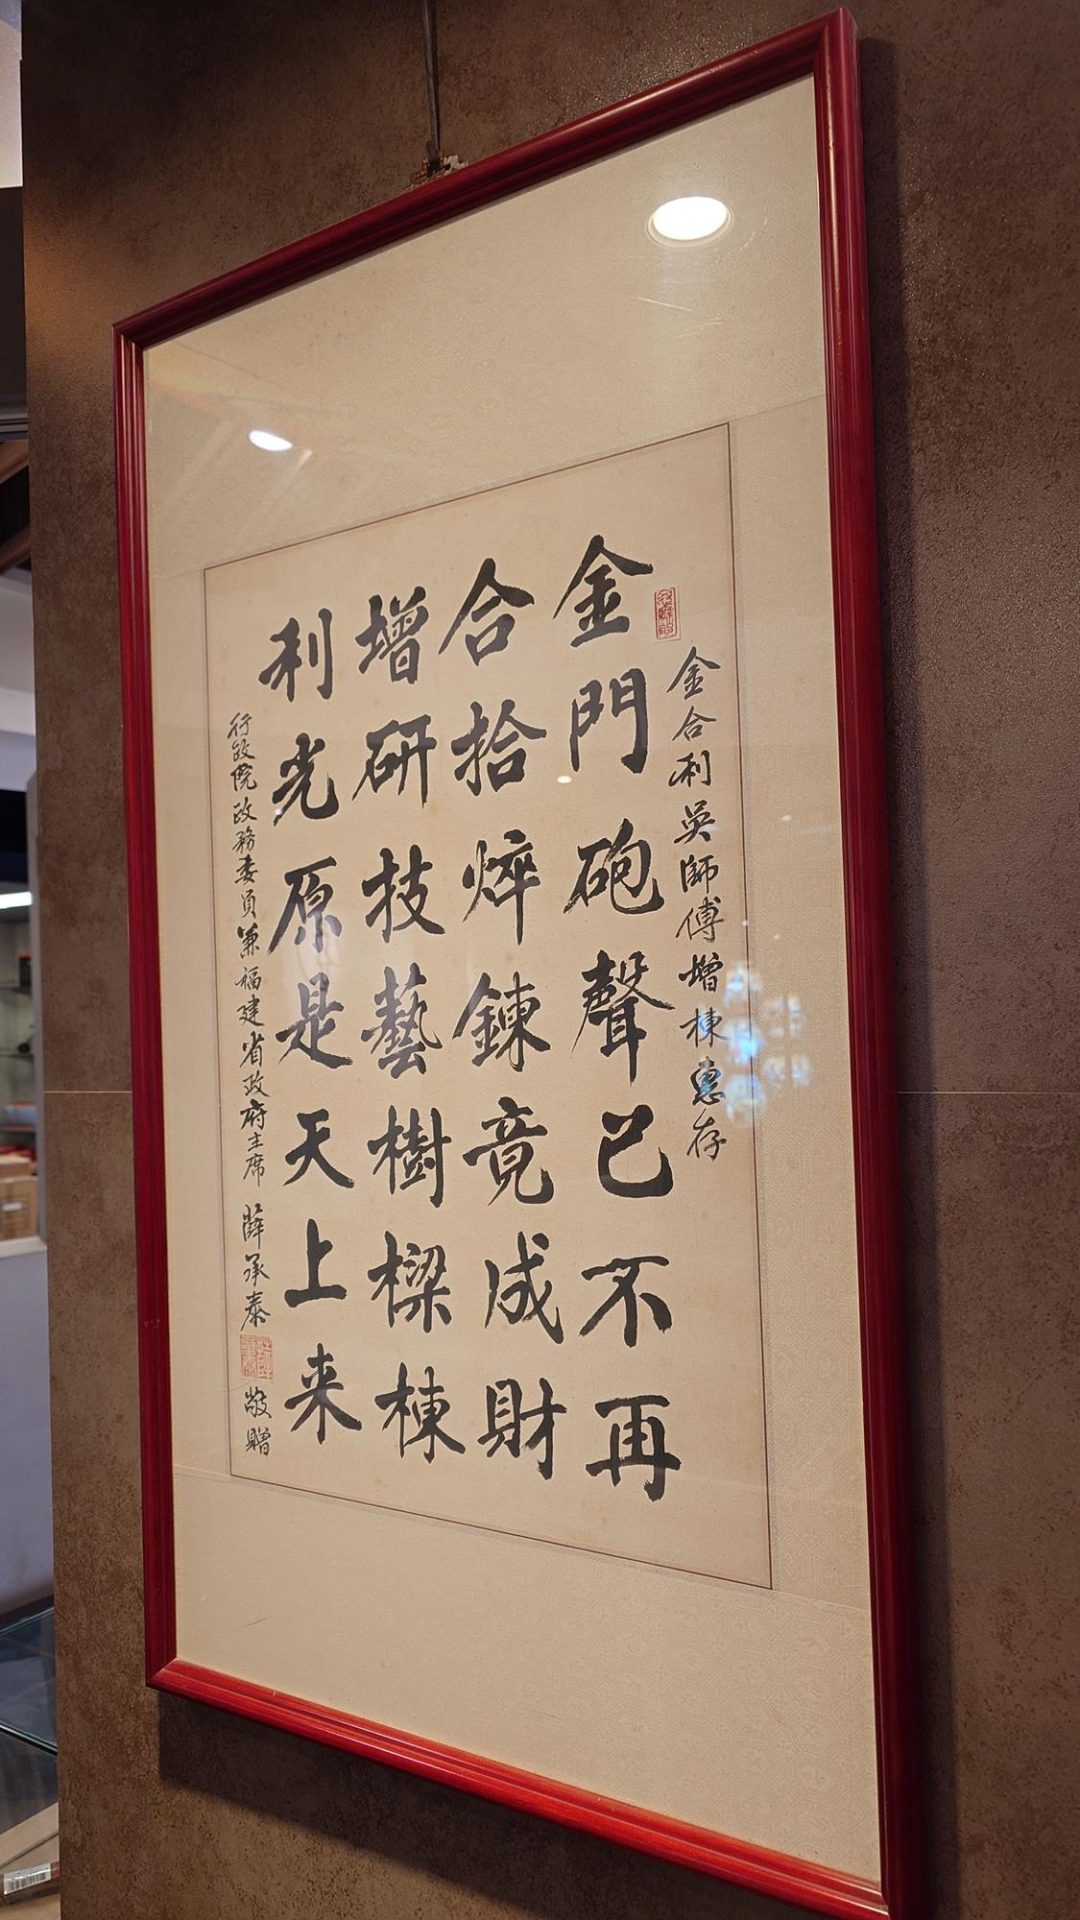 金合利吳師傅增棟惠存
金門砲聲已不再
合拾焠鍊竟成財
增研技藝樹樑棟
利光原是天上来
行政院政務委員兼福建省政府主席 薛承泰 敬贈